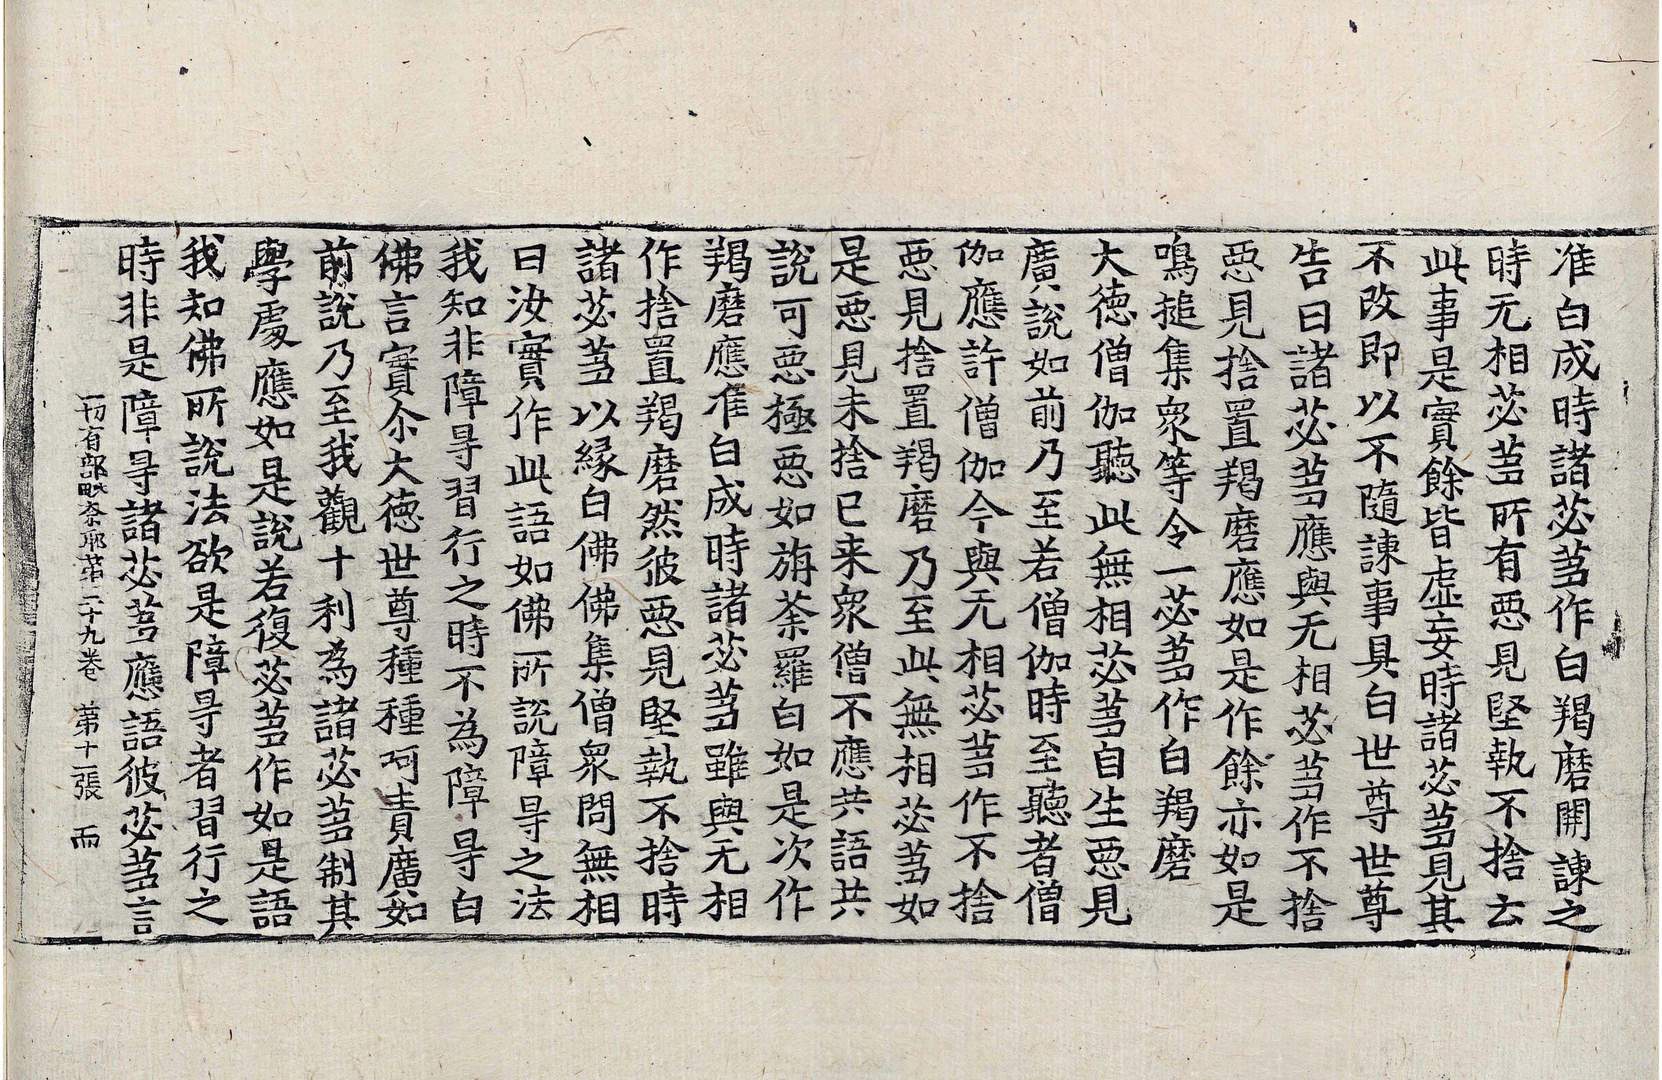 准白成時諸苾芻作白羯磨開諫之
時无相苾芻所有惡見堅執不捨云
此事是實餘皆虛妄時諸苾芻見其
不改即以不隨諫事具白世尊世尊
告曰諸苾芻應與无相苾芻作不捨
惡見捨置羯磨應如是作餘亦如是
鳴搥集衆等令一苾芻作白羯磨
大徳僧伽聽此無相苾芻自生惡見
廣說如前乃至若僧伽時至聽者僧
伽應許僧伽今與无相苾芻作不捨
惡見捨置羯磨乃至此無相苾芻如
是惡見未捨已来衆僧不應共語共
說可惡極惡如旃荼羅白如是次作
羯磨應准白成時諸苾芻雖與无相
作捨置羯磨然彼惡見堅執不捨時
諸苾芻以緣白佛佛集僧衆問無相
曰汝實作此語如佛所說障㝵之法
我知非障㝵習行之時不為障㝵白
佛言實尒大徳世尊種種呵責廣如
前說乃至我觀十利為諸苾芻制其
學處應如是說若復苾芻作如是語
我知佛所說法欲是障㝵者習行之
時非是障㝵諸苾芻應語彼苾芻言
一切有部毗奈耶第三十九卷 第十一張 而